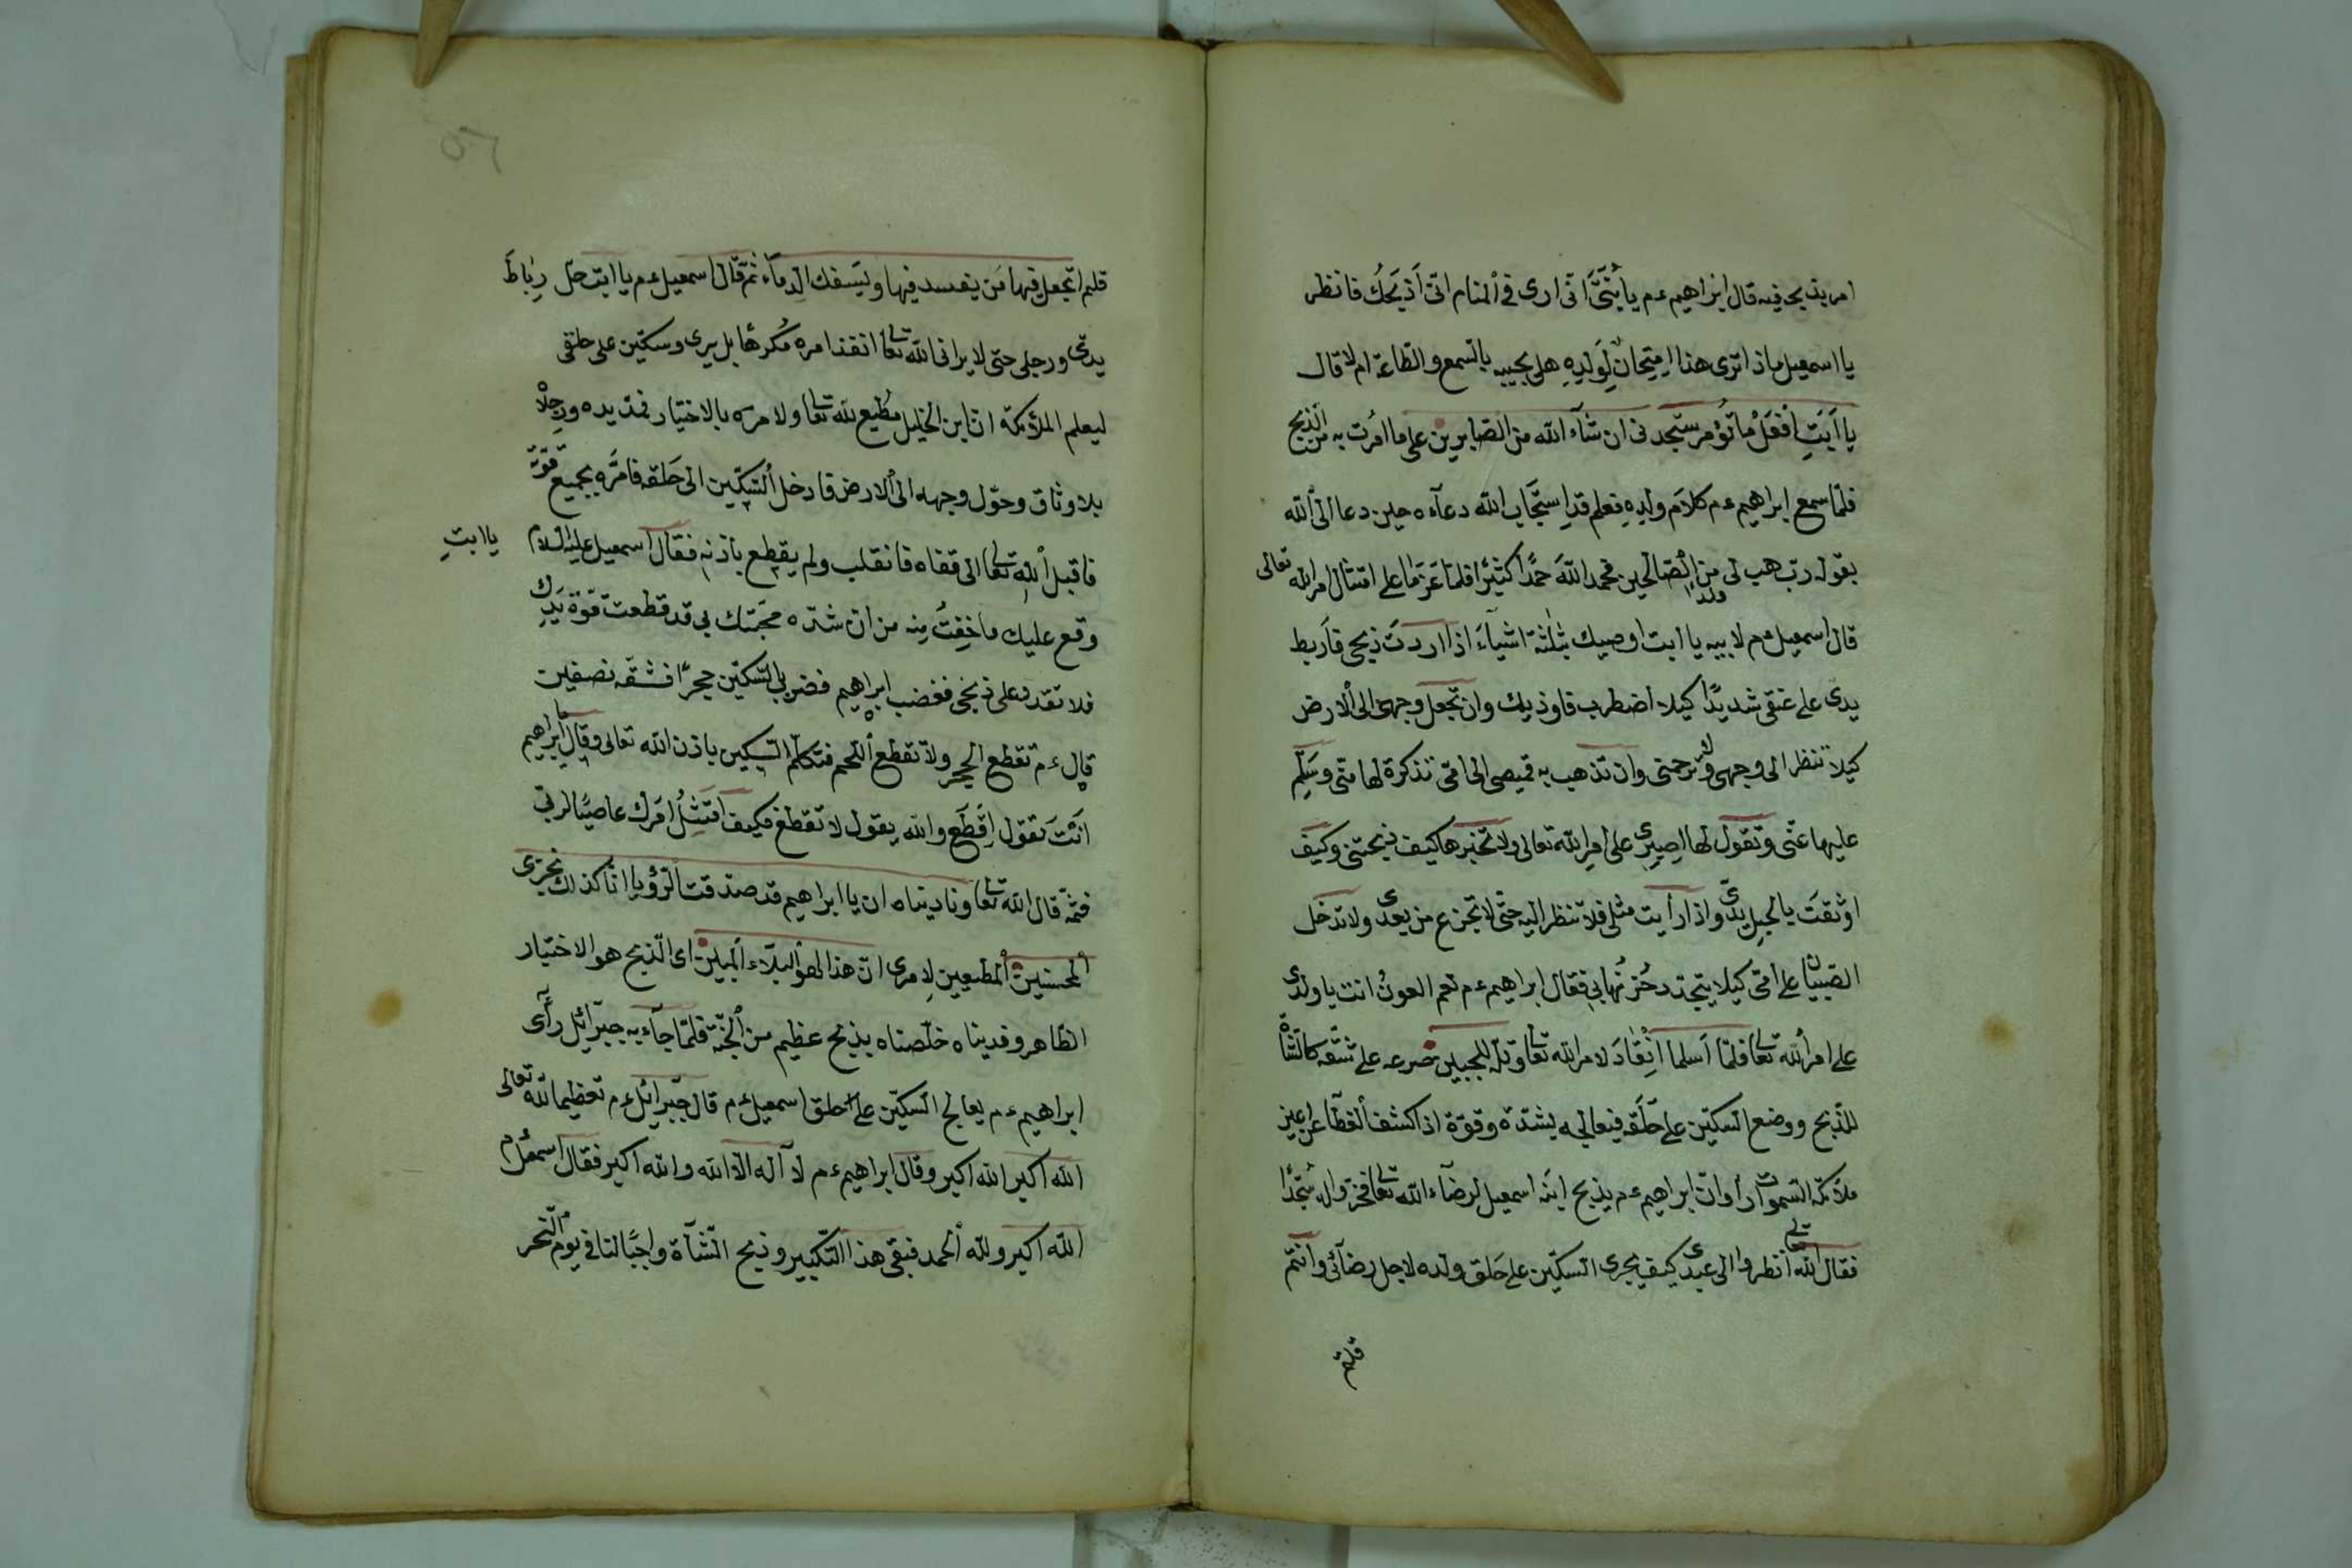 امر بذبح فيه قال ابراهيم ءم يا بُنَيَّ انى ارى فى المنام انى اَذبَحُك فانظر
يا اسمعيل ماذا ترى هذا اِمتِحانٌ لِوَلَدِهِ هل يجيبه بالسمع والطاعة ام لا قال
يا اَبَتِ اِفْعَلْ ما تُؤْمر ستجدنى ان شآء الله من الصّابرين على ما امُرت به من الذبح
فلمّا سمع ابراهيم ءم كلامَ ولدِهِ فعلم قدِ استَجَاب الله دعآءه حين دعا الى الله
بقوله ربّ هب لى ولدا من الصّالحين فحمد اللهَ حمدًا كثيرًا فلمّا عَزَما على امتثال امر الله تعالى
قال اسمعيل ءم لابيه يا ابت اوصيك بثلثة اشيآءَ اذا اردتَ ذبحى فاَربط
يدى على عنقى شديدًا كيلا اضطرب فاوذيك وان تجعل وجهى الى الارض
كيلا تنظر الى وجهى فترحمنى وان تذهب به قميصى الى امّى تذكرة لها منّى وسَلِّم
عليها عنّى وتقول لها اصبرى على امرِ الله تعالى ولا تخبرها كيف ذبحتنى وكيفَ
اوثقتَ بالحبل يدىّ واذا رأيت مثلى فلا تنظر اليه حتى لا تجزع من بعدى ولا تدخل
الصبيان على امّى كيلا يتجدد حُزنُها بى فقال ابراهيم ءم نعم العونُ انت يا ولدى
على امر الله تعا فلمّا اَسلما انقادَ لامر الله تعا وتلّه للجبين صَرعه على شقّه كالشّاة
للذّبح ووضع السكّين على حَلْقه فيعالجه بشدّة وقوّة اذ اكشف الغطآء عن اعين
ملآئكة السموات رأوا ان ابراهيم ءم يذبح ابنَه اسمعيل لرضآء الله تعا فخرّوا له سُجّدًا
فقال الله تعا انظروا الى عبدى كيف يجرى السكّين على حَلق ولده لاجل رضآئى وانتم
قلتم
٥٦
قلتم اتجعل فيها مَن يفسد فيها ويَسفك الدِمآء ثم قال اسمعيل ءم يا ابت حلّ رِباطَ
يدىّ ورجلى حتى لا يرانى الله تعا انقذ امره مُكرهًا بل يرى وسكّين على حلقى
ليعلم الملآئكة ان ابن الخليل مُطيع لله تعا ولامره بالاختيار فمدّ يده ورجلاه
بلا وثاق وحوّل وجهه الى الارض فادخل السّكّين الى حَلقه فامرَّه بجميع قوّته
فاقبل الله تعا الى قفاه فانقلب ولم يقطع باذنه فقال اسمعيل عليه السلام يا ابتِ
وقع عليك ما خِفتُ مِنه من ان شدّة محبّتك بى قد قطعت قوّة يَدِك
فلا تقدر على ذبحى فغضب ابراهيم فضرب بالسّكّين حجرًا فشقّه نصفين
قال ءم تقطع الحجر ولا تقطع اللحم فتكلّم السّكين باذن الله تعالى وقال يا ابراهيم
انتَ تقول اِقْطَع والله يقول لا تقطع فكيف اَمتَثِلُ امَرك عاصيًا لربّى
فثمّه قال الله تعا وناديناه ان يا ابراهيم قد صدّقت الرّؤيا انّا كذلك نجزى
المحسنين المطيعين لِامرى انّ هذا لهو البلآء المبين اى الذّبح هو الاختيار
الظاهر وفديناه خلّصناه بذبح عظيم من الجنّة فلمّا جآء به جبرآئل رأى
ابراهيم ءم يعالج السكّين على حلق اسمعيل ءم قال جبرائل ءم تعظيما لله تعالى
الله اكبر الله اكبر وقال ابراهيم ءم لآ اله الا الله والله اكبر فقال اسمعيل ءم
الله اكبر ولله الحمد فبقى هذا التّكبير وذبح الشّآة واجبًا لنا فى يوم النّحر